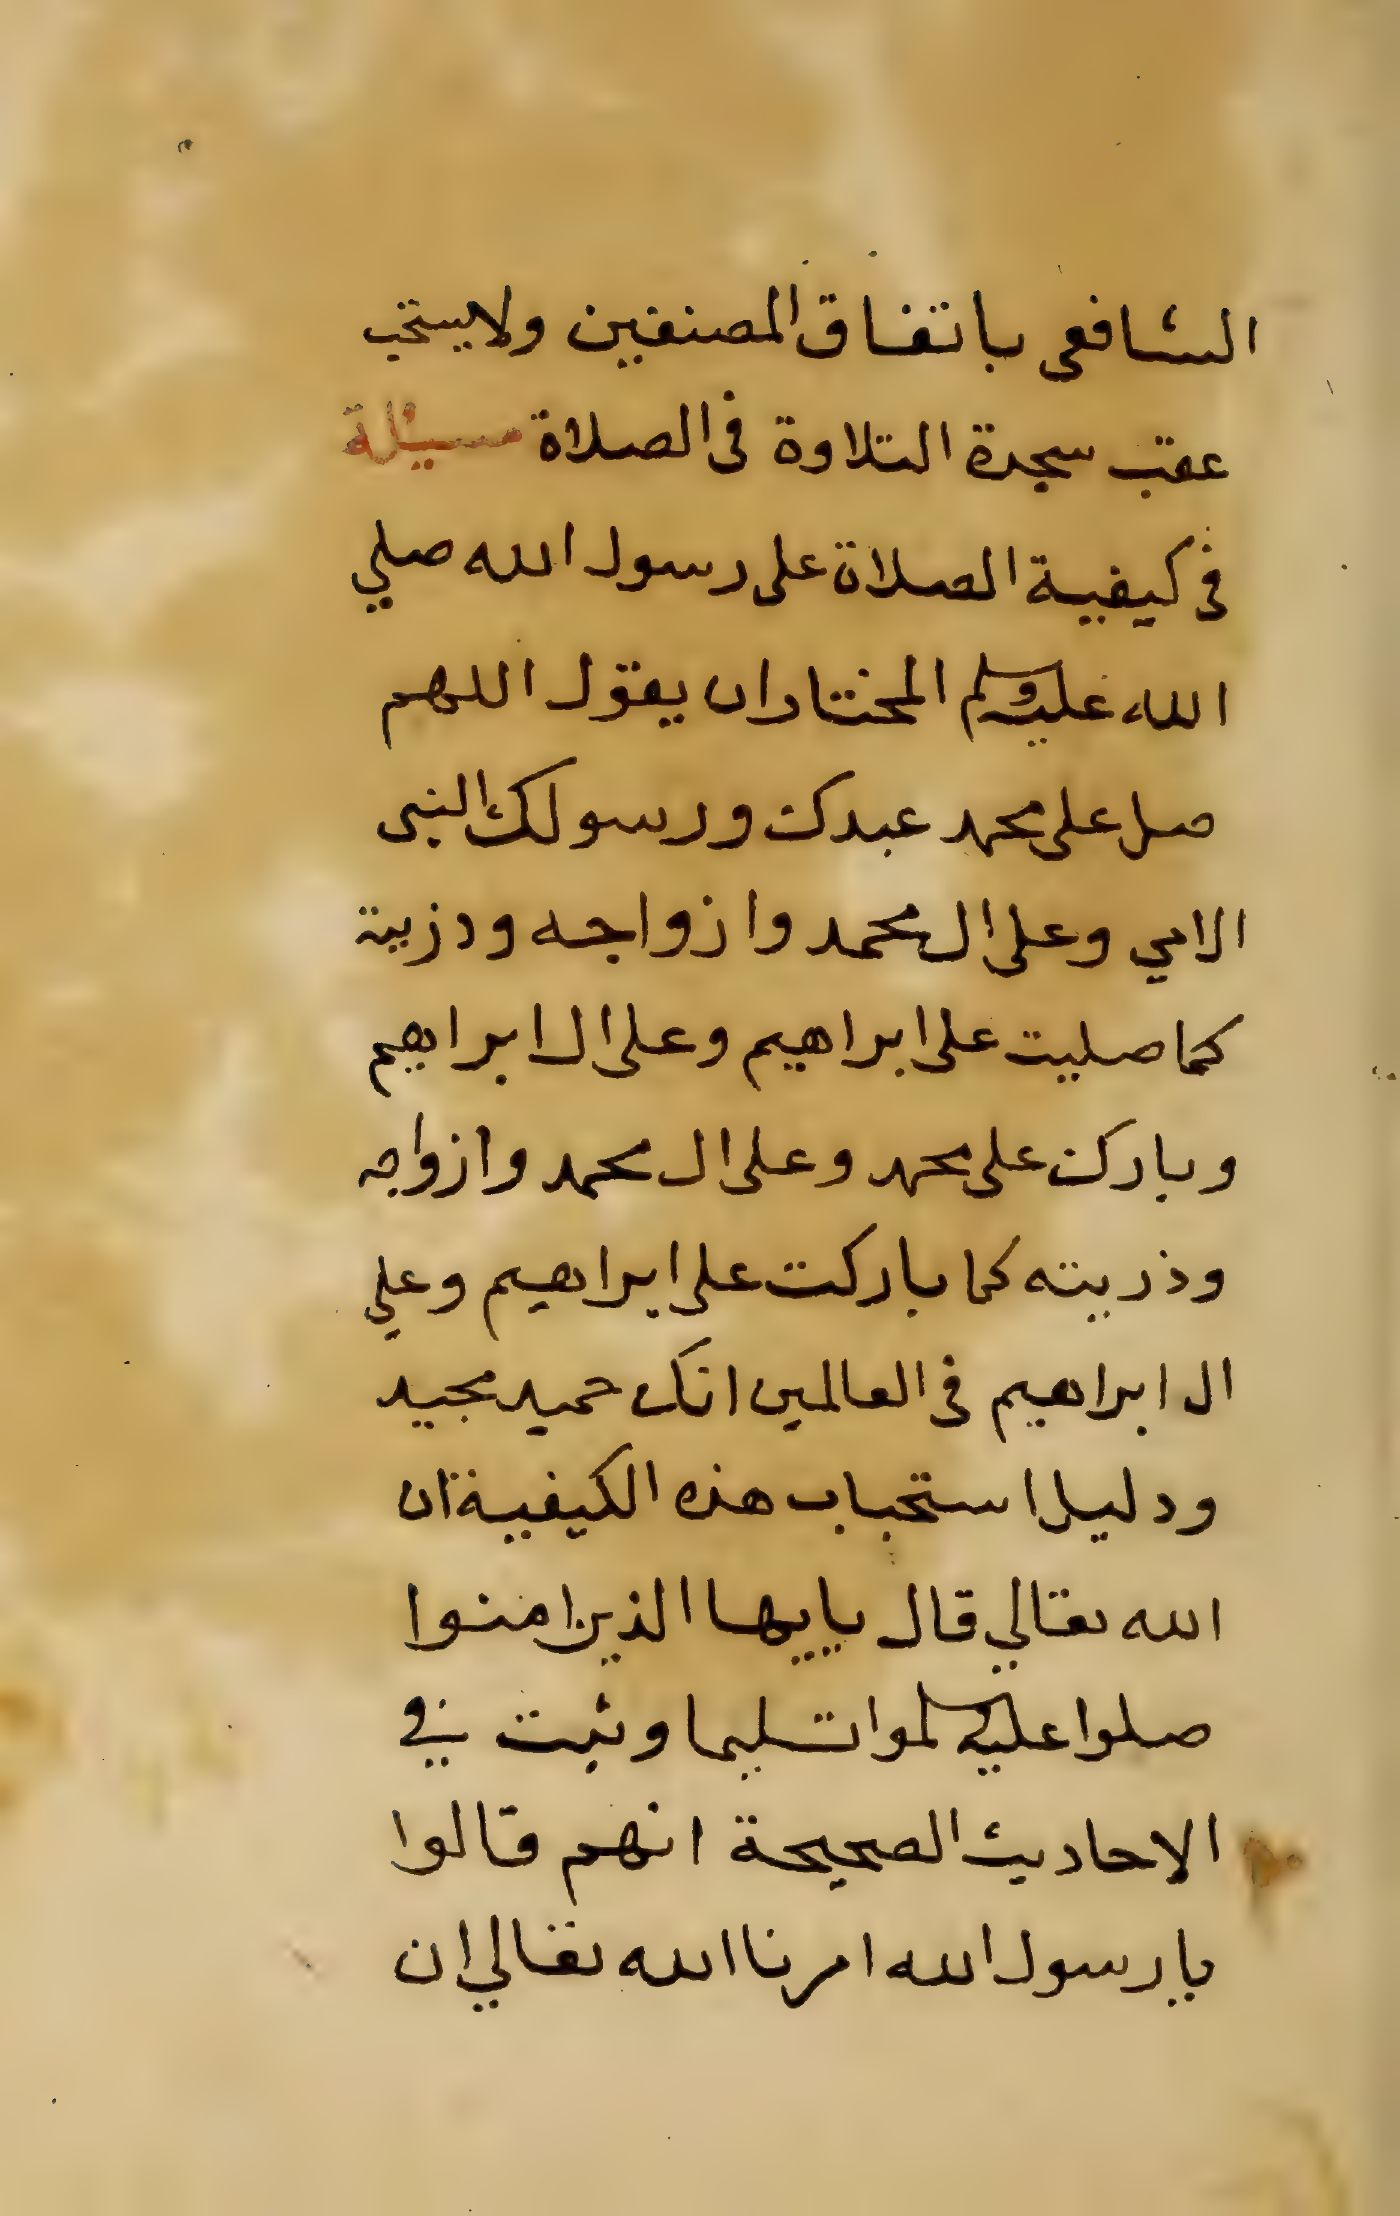 الشافعي باتفاق المصنفين ولا يستحب
عقب سجدة التلاوة في الصلاة مسيلة
في كيفية الصلاة على رسول الله صلي
الله عليه وسلم المختار ان يقول اللهم
صل على محمد عبدك ورسولك النبى
الامي وعلى ال محمد وازواجه وذريته
كما صليت على ابراهيم وعلى ال ابراهيم
وبارك على محمد وعلى ال محمد وازواجه
وذريته كما باركت على ابراهيم وعلي
ال ابراهيم في العالمين انك حميد مجيد
ودليل استحباب هذه الكيفية ان
الله تعالي قال يايها الذين امنوا
صلوا عليه وسلموا تسليما وثبت في
الاحاديث الصحيحة انهم قالوا
يا رسول الله امرنا الله تعالي ان